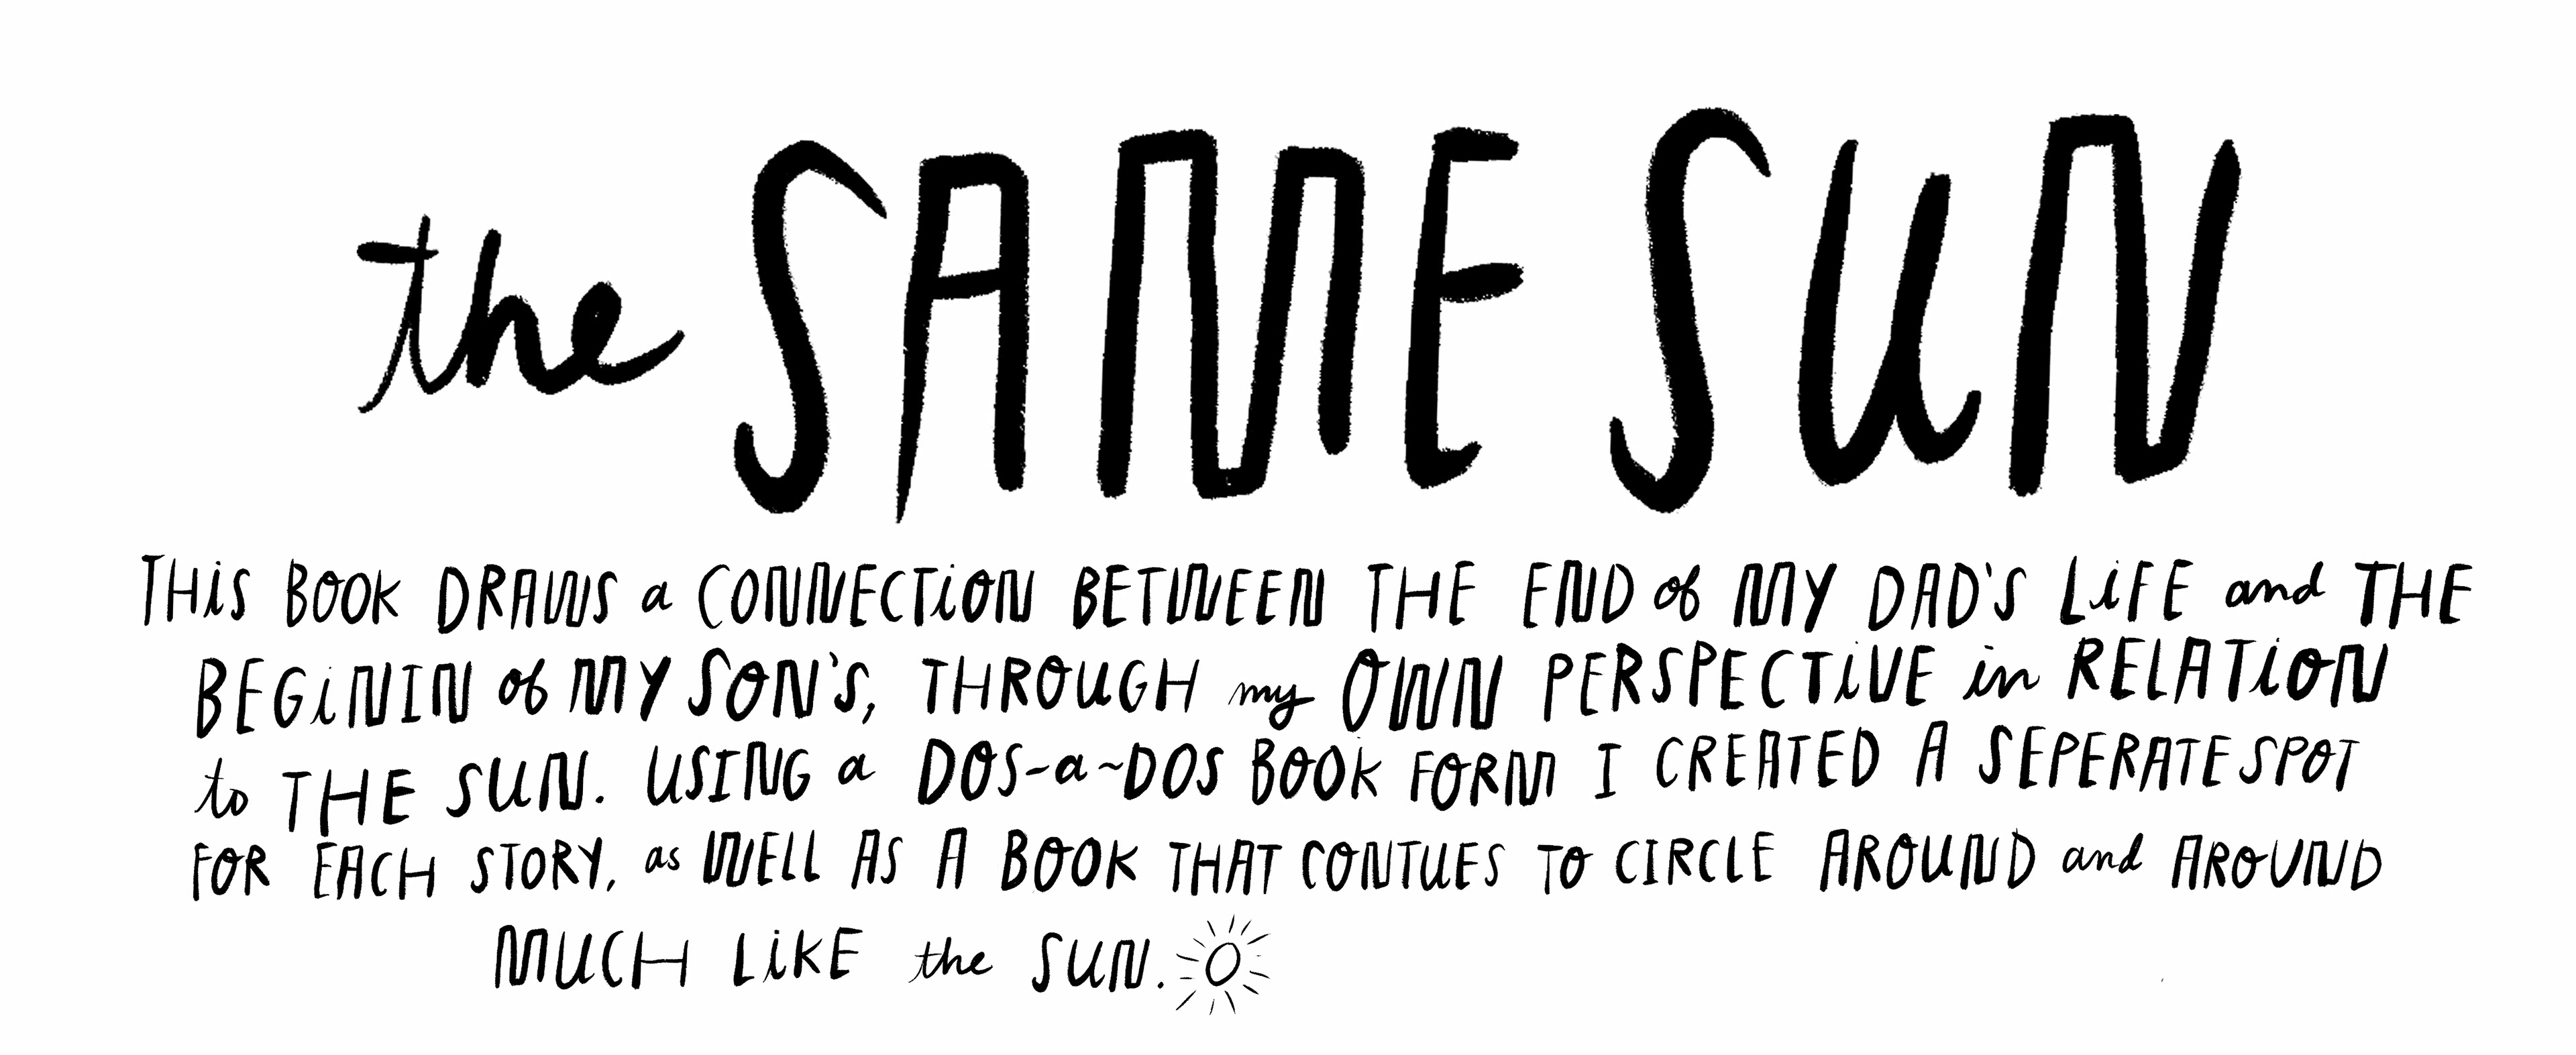 the SAME SUN
THiS BOOK DRAWS a CONNECTiON BETWEEN THE END of MY DAD'S LiFE and THE
BEGiNIN of MY SON'S, THROUGH my OWN PERSPECTiVE in RELATiON
to THE SUN. USING a DOS-a~DOS BOOK FORM I CREATED A SEPERATE SPOT
FOR EACH STORY, as WELL AS A BOOK THAT CONTUES TO CIRCLE AROUND and AROUND
MUCH LiKE the SUN.